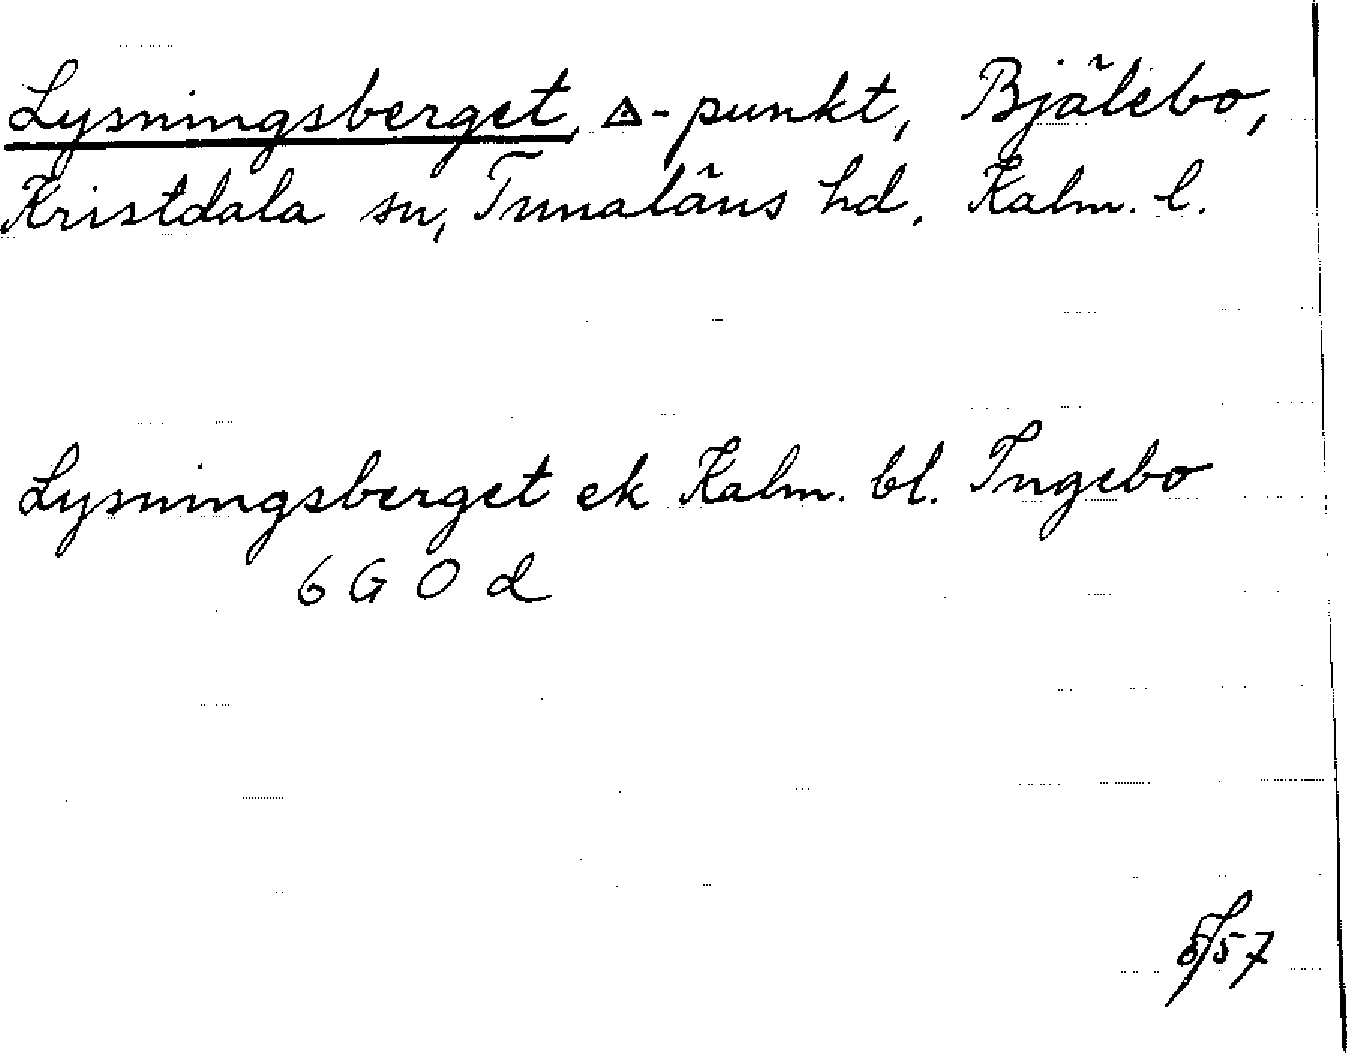 Lysningsberget, △-punkt, Bjälebo,
Kristdala sn, Tunaläns hd, Kalm. l.
Lysningsberget ek Kalm. bl. Ingebo
6 G O d